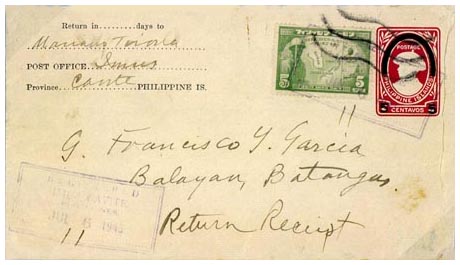 Return in days to
Mariano
POST OFFICE Imus
Province Cavite PHILIPPINE IS.
5 5
POSTAGE
PHILIPPINE ISLANDS
CENTAVOS
5 5
11
G. Francisco Y. Garcia
Balayan, Batangas
Return Receipt
REGISTERED
CAVITE
JUL 6 1943
11